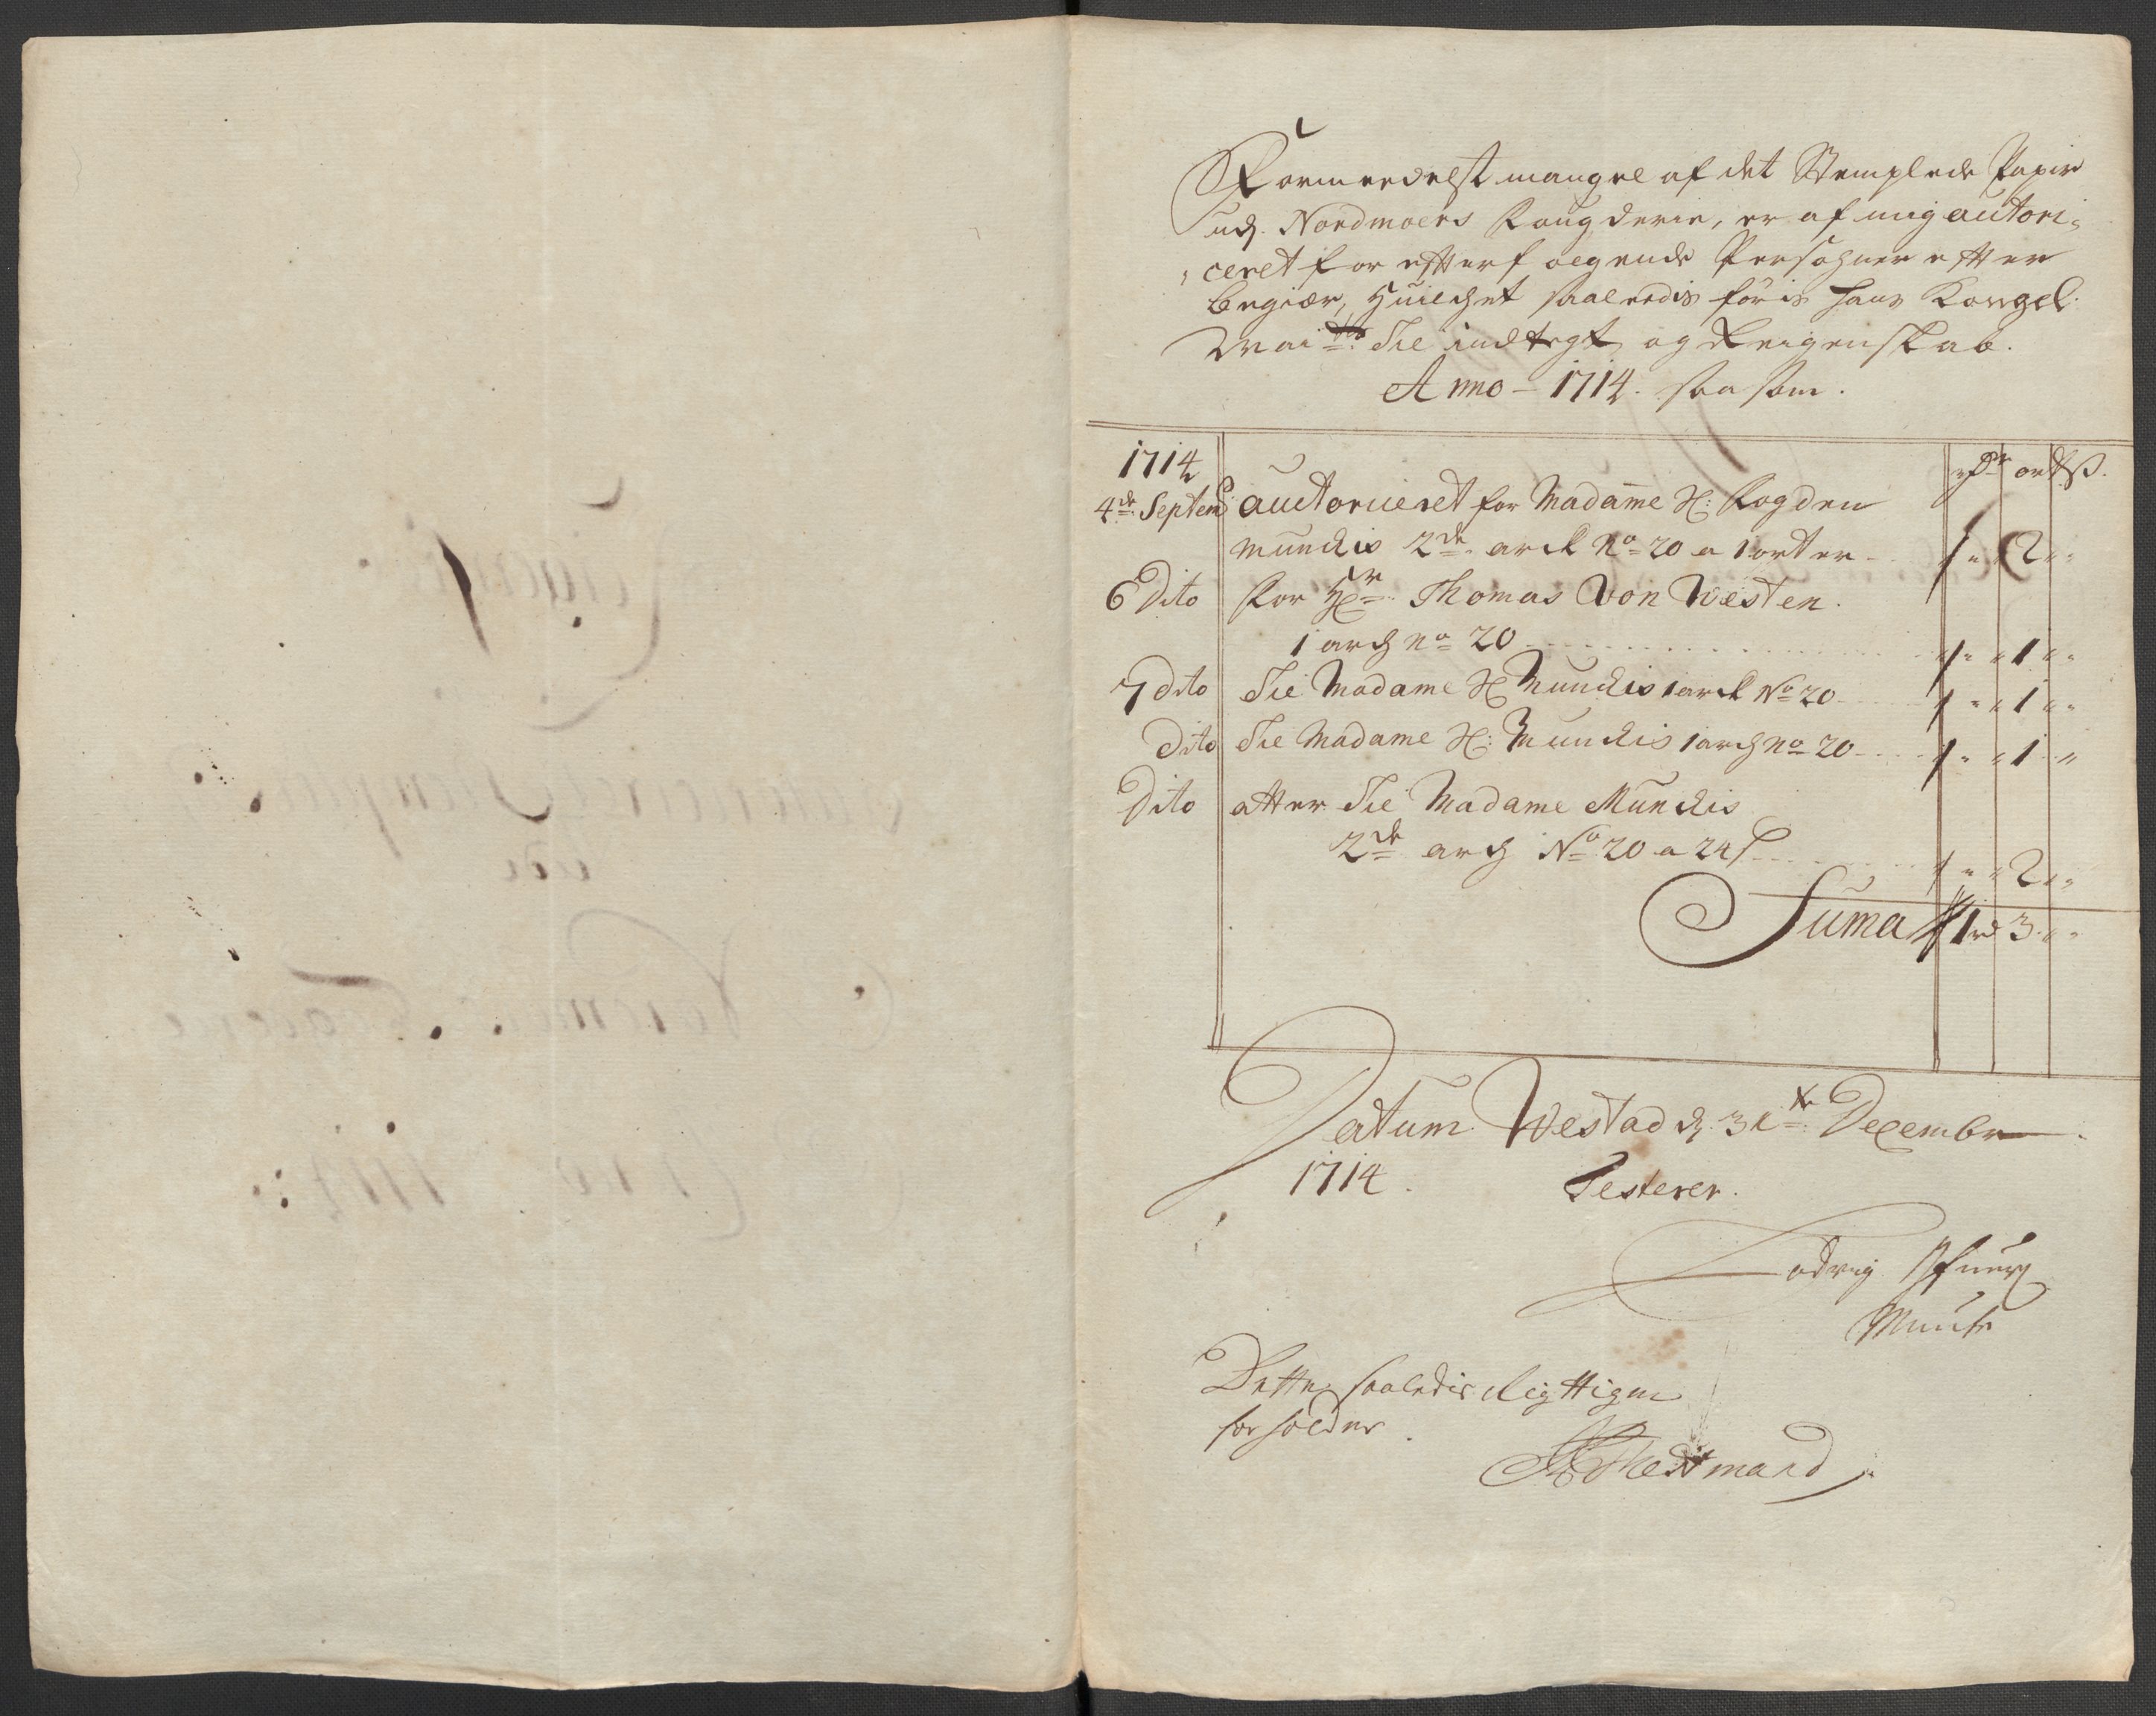 Formeedelst mangel af det Stemplede Papir
udj Nordmoers Fougderie, er af mig autori-
ceret for efterfølgende Persohner efter
begiær, huilchet saaledis føris hans Kongel:
Mai:ts Til indtegt og Reigenskab.
Anno - 1714. saa som.
1714 rdr ort ß.
4de Septemb auctoriceret for Madame H: Fogden
Munckis 2de arck No 20 a 1 ort er - 2 -
6 Dito for Hr Thomas Von Westen.
1 arch No 20 - 1 -
7 dito Til Madame H Munckis 1 arck No 20 - 1 -
Dito Til Madame H: Munckis 1 arch No 20 - 1 -
Dito atter Til Madame Munckis
2de arch No 20 a 24 ß - 2 -
Suma 1 rd 3 -
Datum Westad d. 31te Decembr
1714. Testerer.
Lodvig
Munch
Dette saaledis Rigttigen
forholder.
Wedtmand